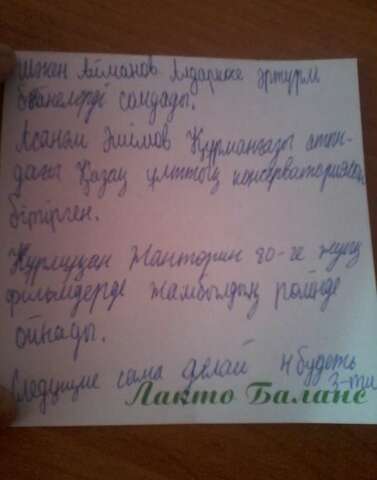 Шәкен Айманов Алдаркөсе әртүрлі
бейнелерді сомдады.
Асанәлі Әшімов Құрманғазы атын-
дағы Қазақ ұлттық консерваториясын
бітірген.
Нұрмұқан Жантөрин 90-ге жуық
фильмдерде Жамбылдың рөлінде
ойнады.
Следущие сама делай н будеть
3-ти
Лакто Баланс